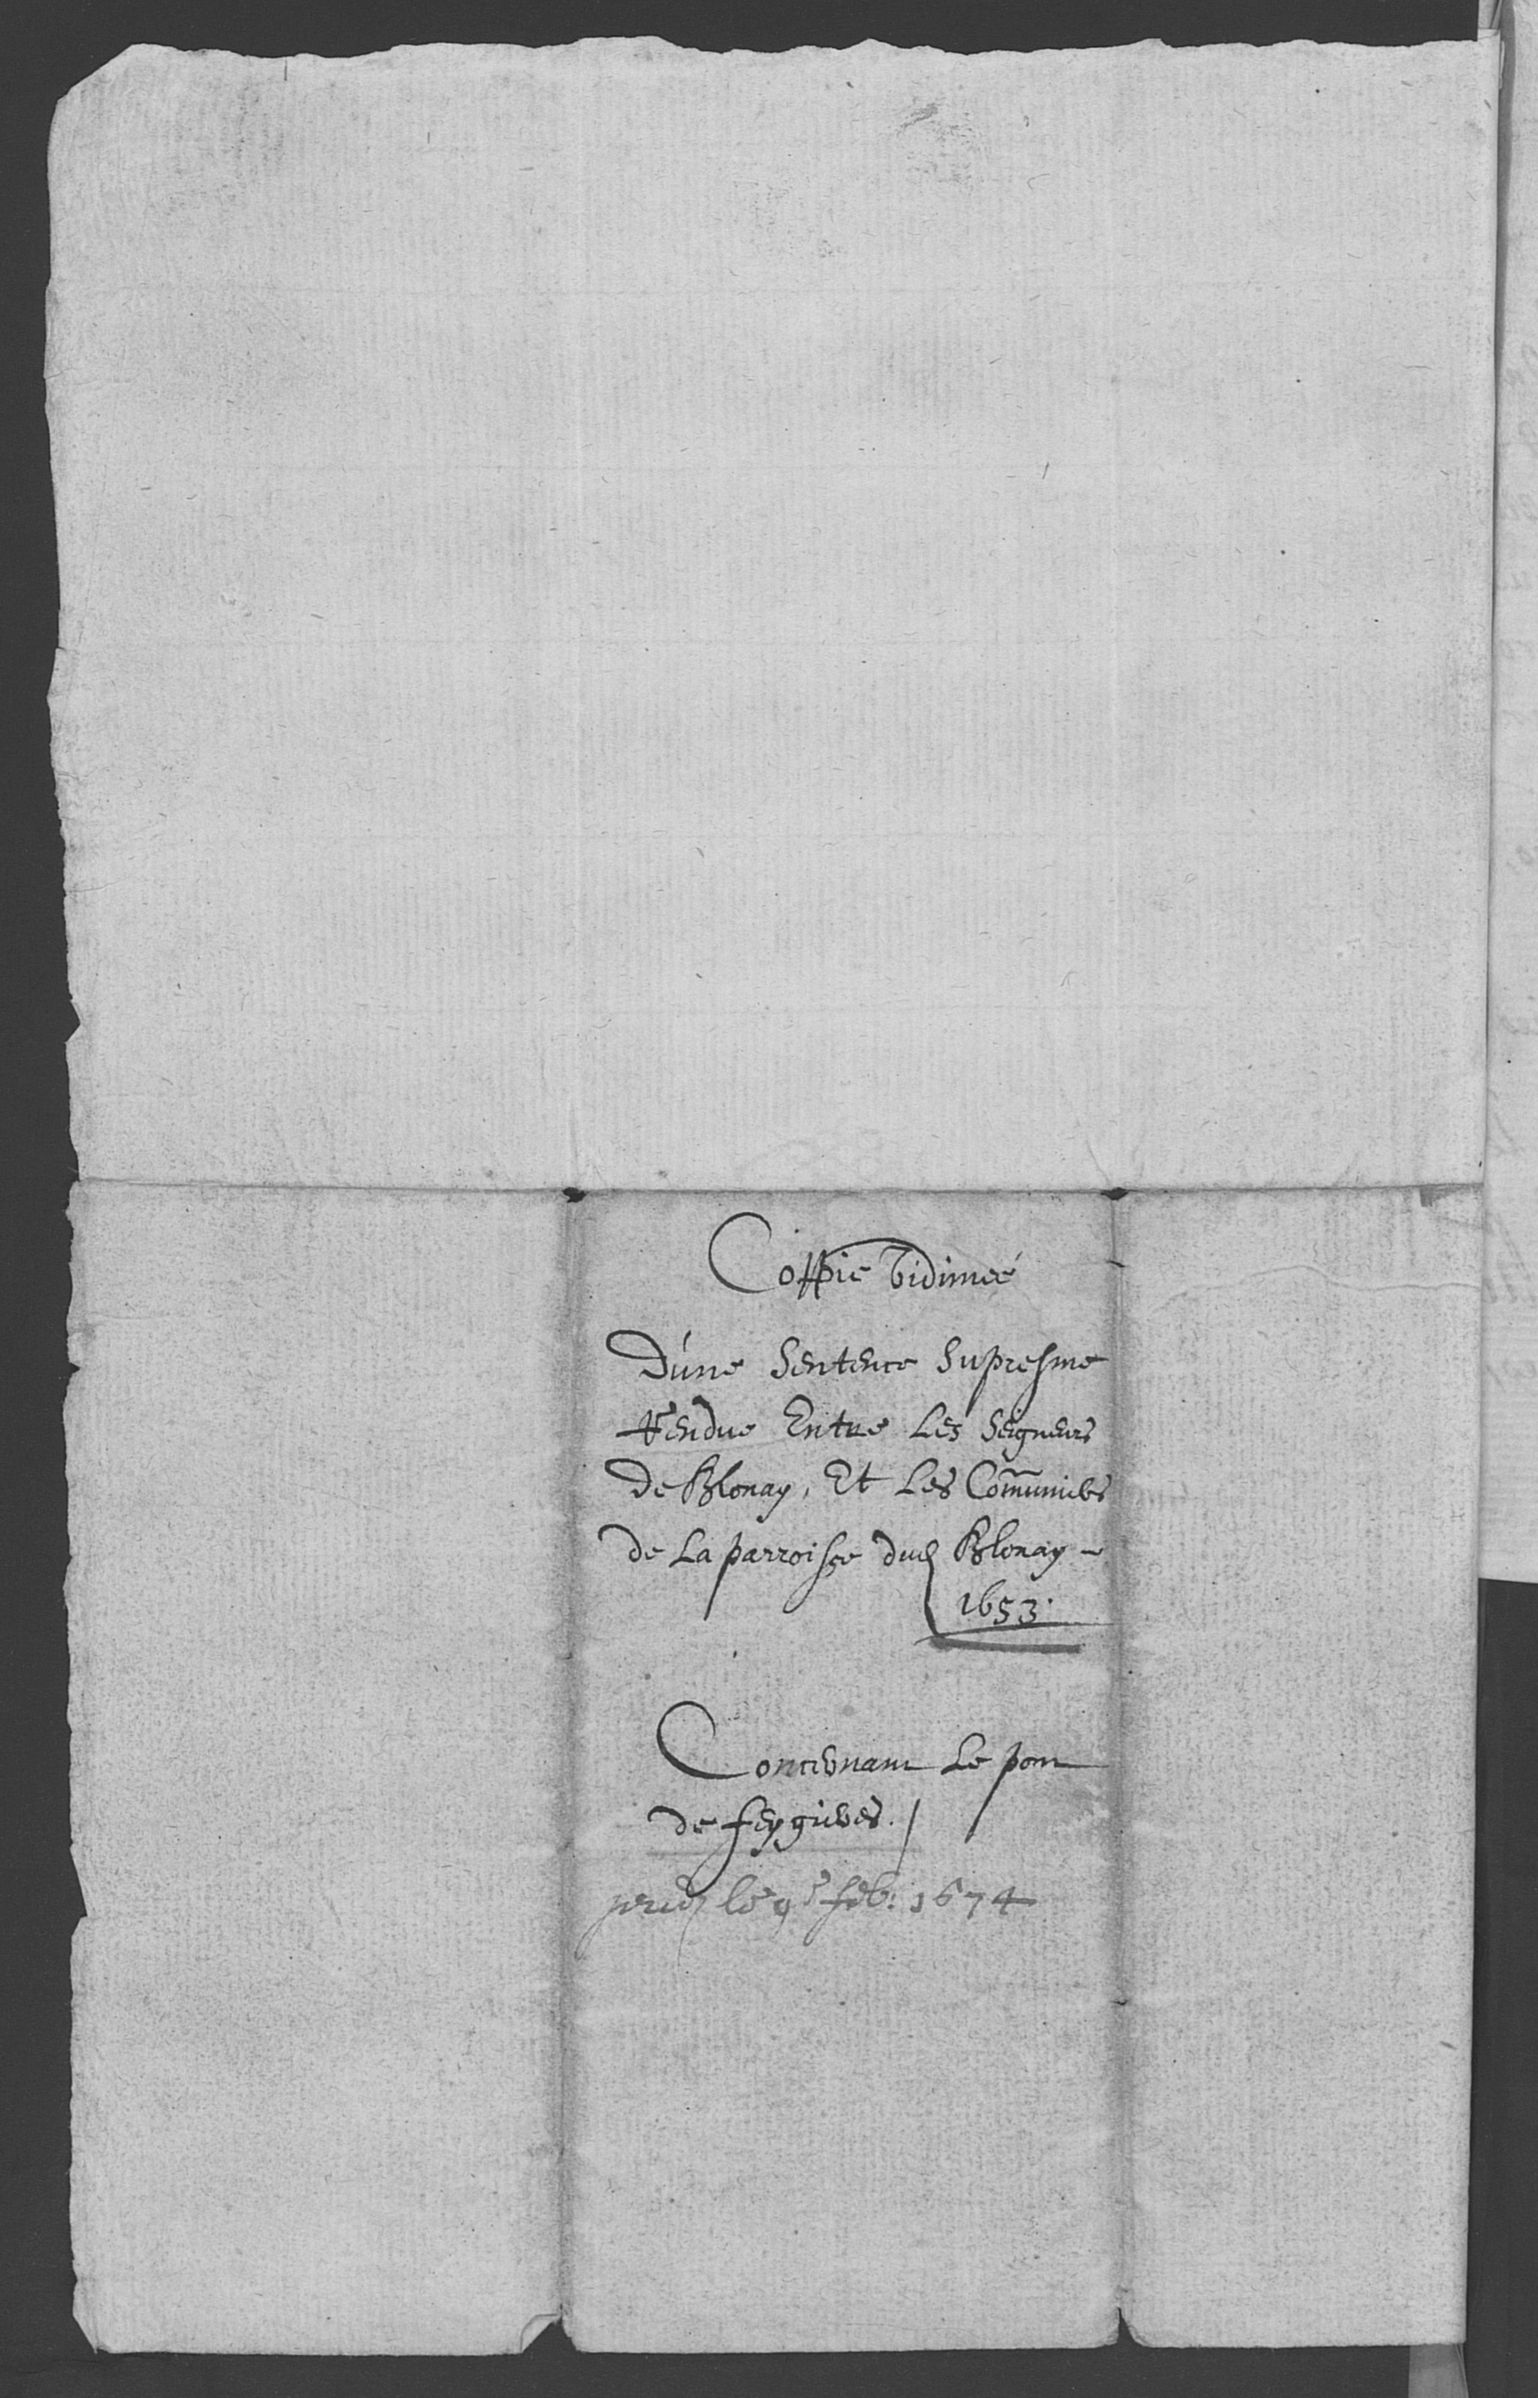 Coppie Vidimeé
D'une Sentence Supresme
Rendue Entre Les Seigneurs
De Blonay, Et Les Comuniers
de La parroisse dud Blonay
1653.
Concernant Le pont
de feygieres.
le 9e feb: 1674